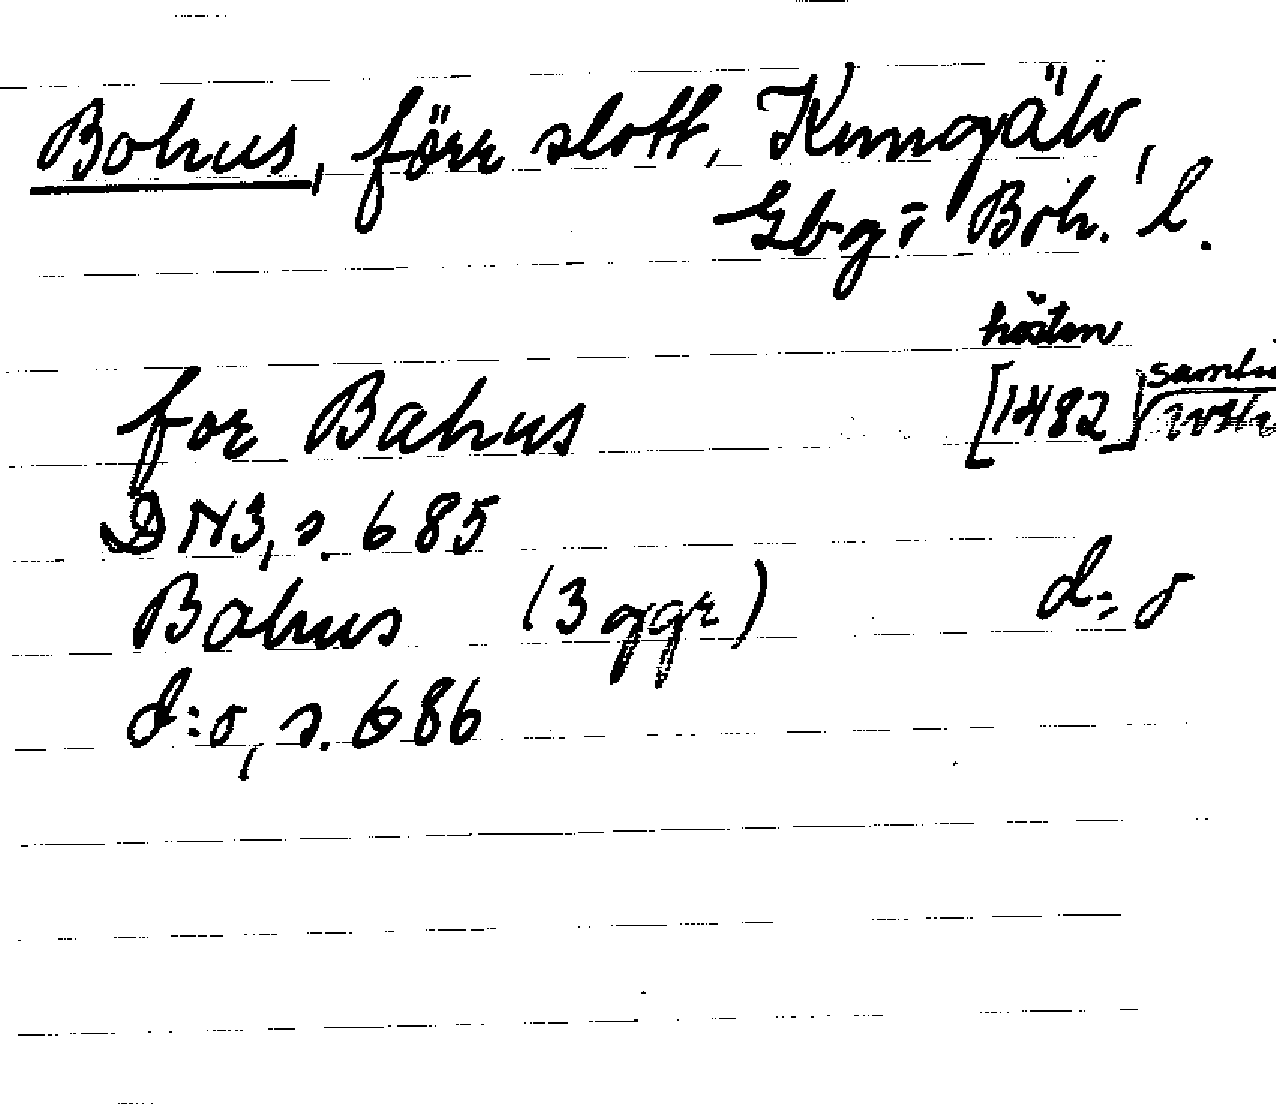 Bohus, förr slott, Kungälv,
Gbg= Boh. l.
hösten
for Bahus [1482]
DN3, s. 685
Bahus (3 ggr) d:o
d:o, s. 686